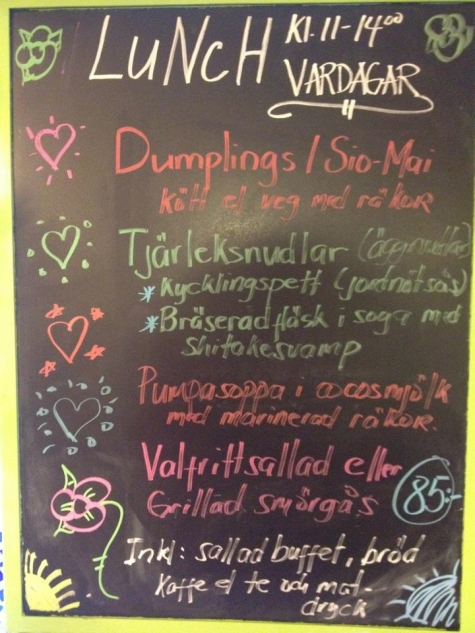 LUNCH Kl. 11-14⁰⁰
VARDAGAR
Dumplings / Sio-Mai
Kött el veg med räkor
Tjärleksnudlar (äggnudlar)
* Kycklingspett (jordnötsås)
* Bräserad fläsk i soya med
Shitakesvamp
Pumpasoppa i cocosmjölk
med marinerad räkor.
Valfrittsallad eller
Grillad smörgås 85:-
Inkl: sallad buffet, bröd
Kaffe el te och mat-
dryck